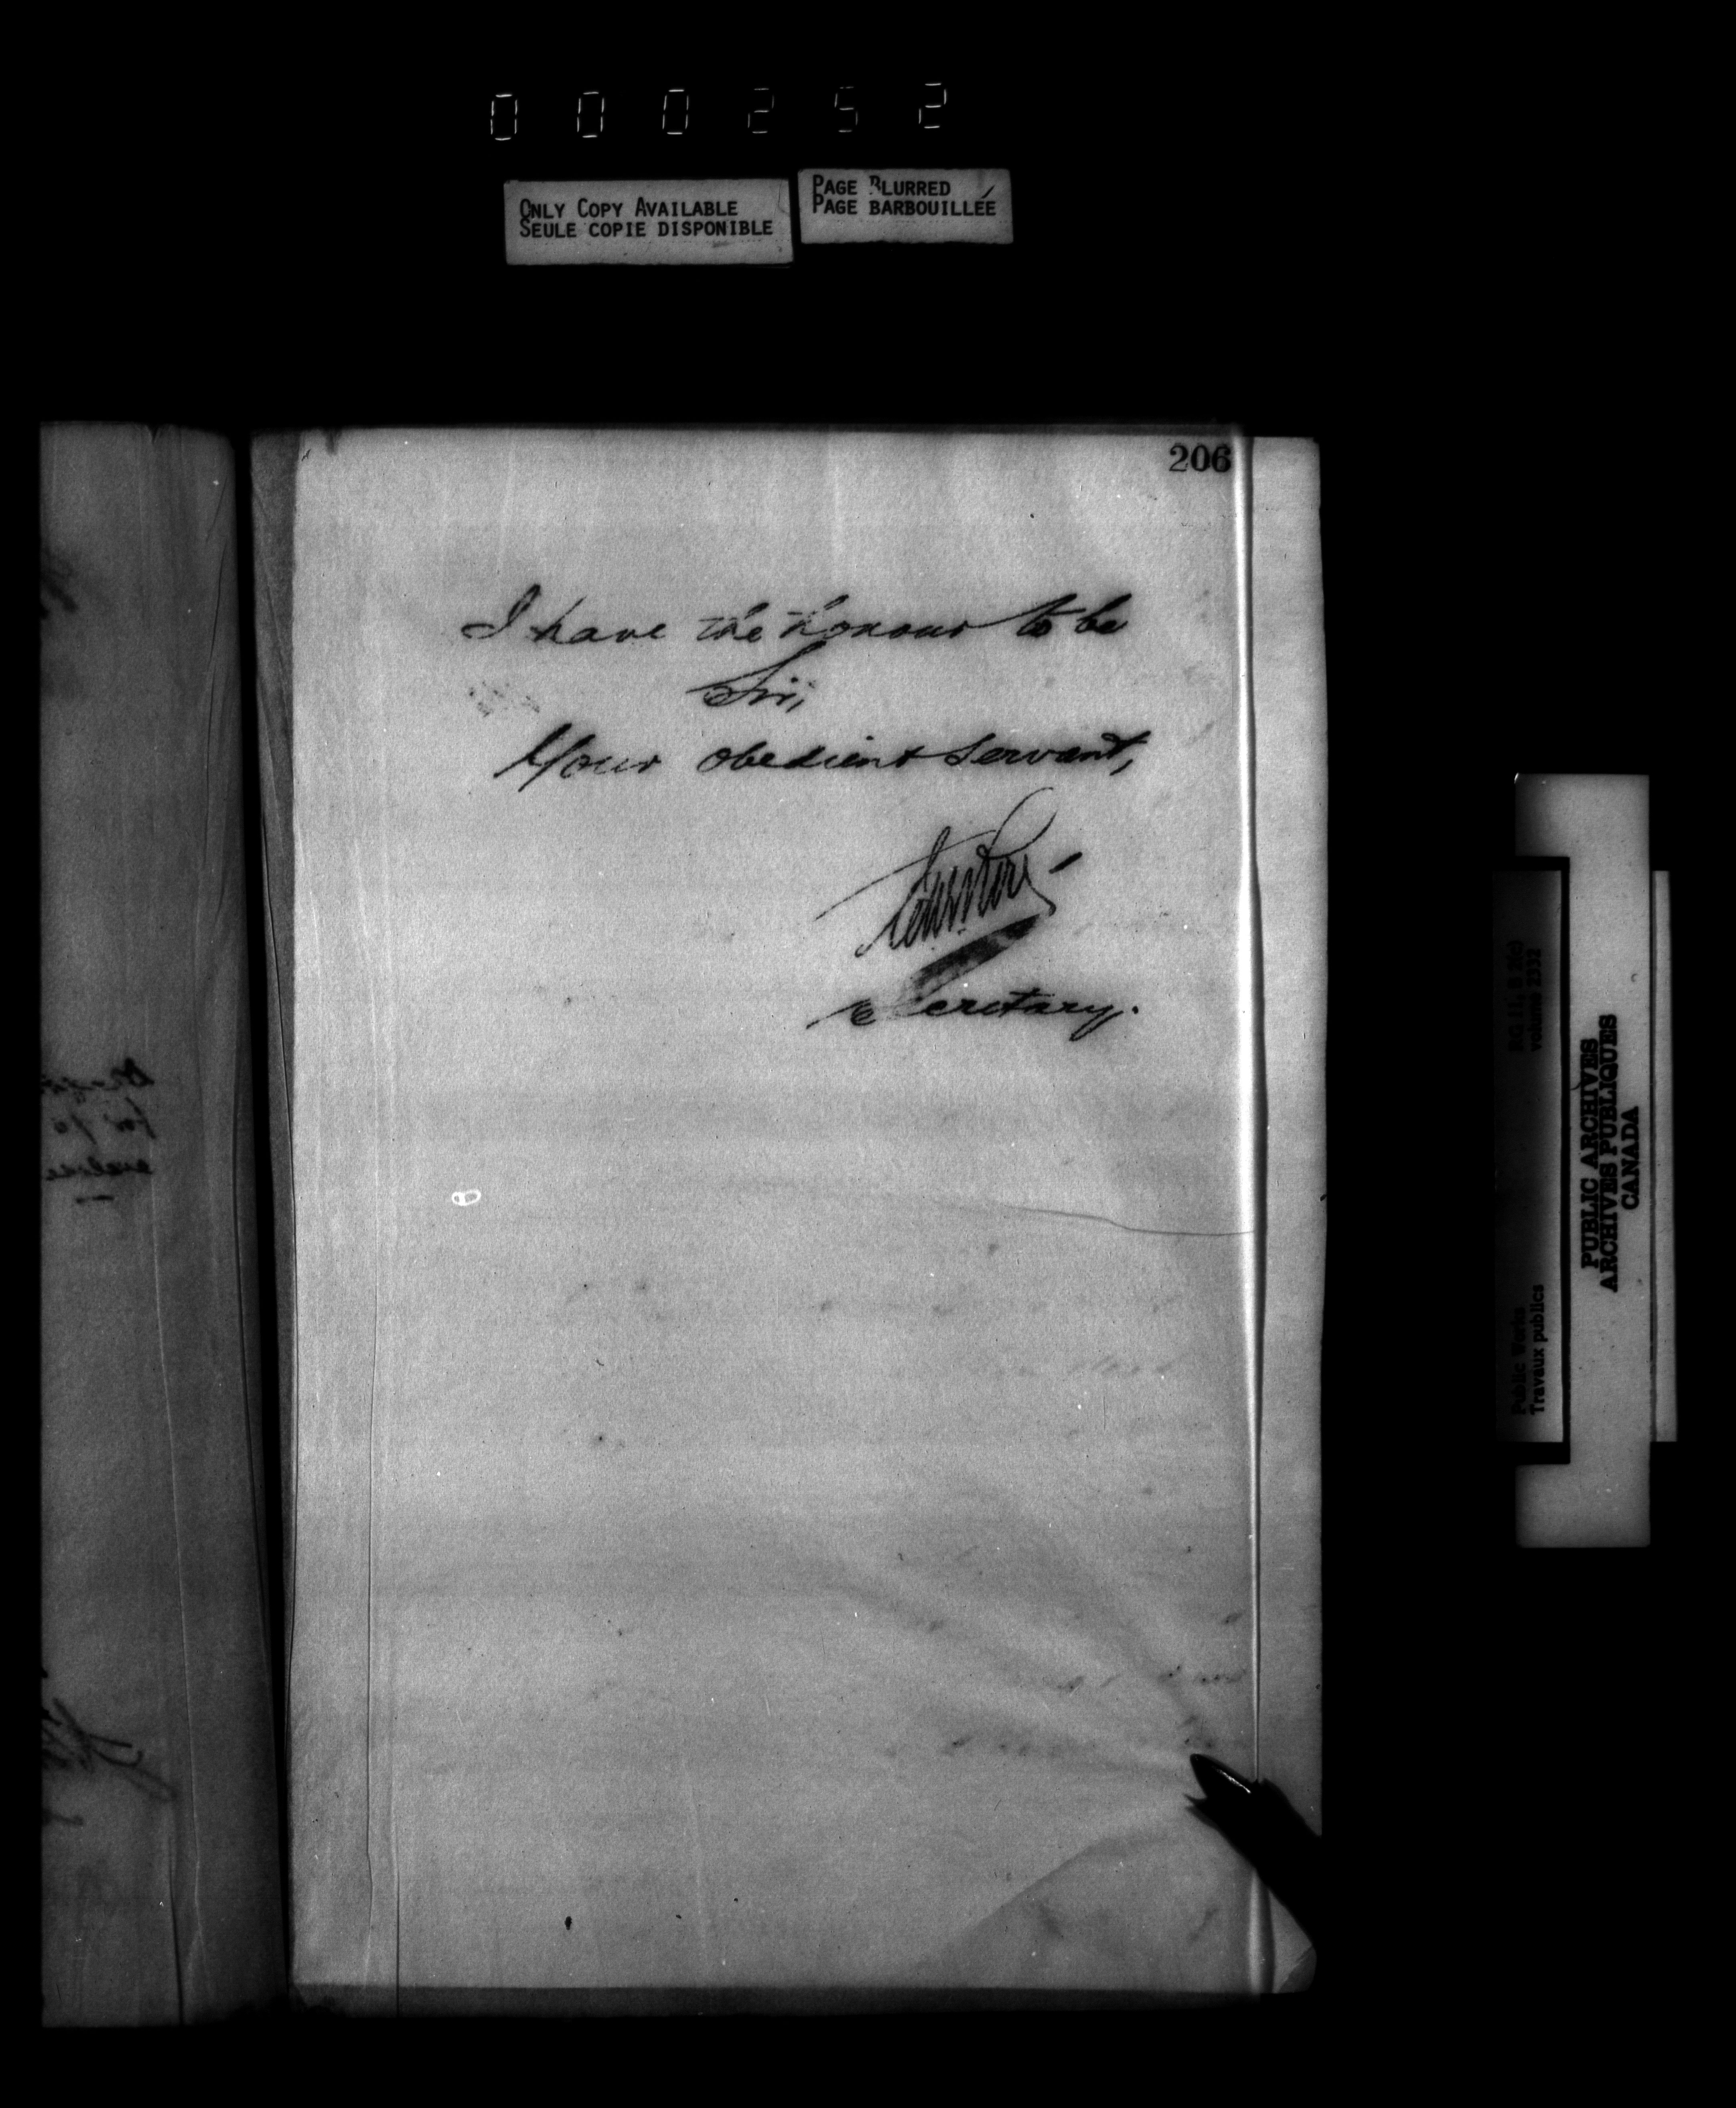 000252
ONLY COPY AVAILABLE
SEULE COPIE DISPONIBLE
PAGE BLURRED
PAGE BARBOUILLÉE
206
I have the honour to be
Sir,
Your obedient servant,
Secretary.
RG 11, B
volume
Public Works
Travaux publics
PUBLIC ARCHIVES
ARCHIVES PUBLIQUES
CANADA